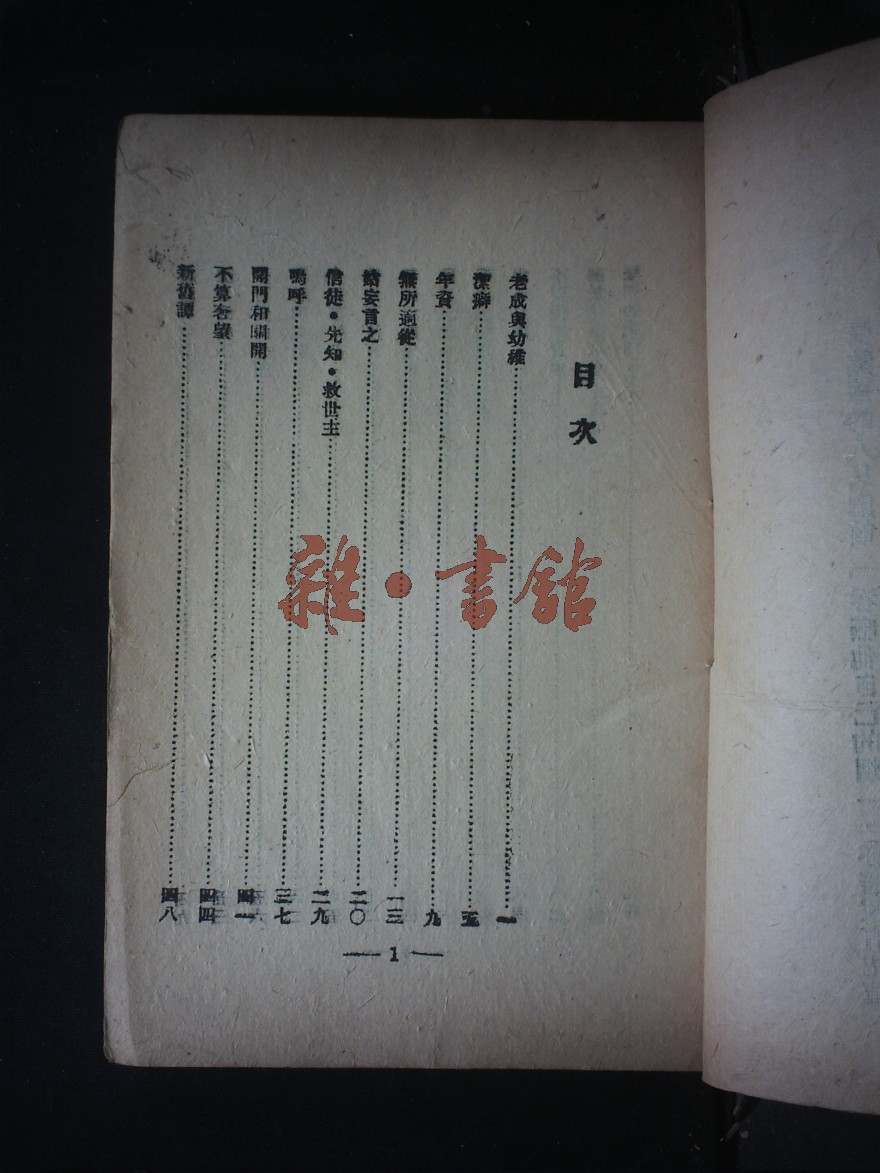 目次
老成與幼稚……一
潔癖……五
年資……九
無所適從……一三
姑妄言之……二〇
信徒·先知·救世主……二九
嗚呼……三七
關門和關開……四一
不算奢望……四四
新舊譚……四八
— 1 —
雜·書館